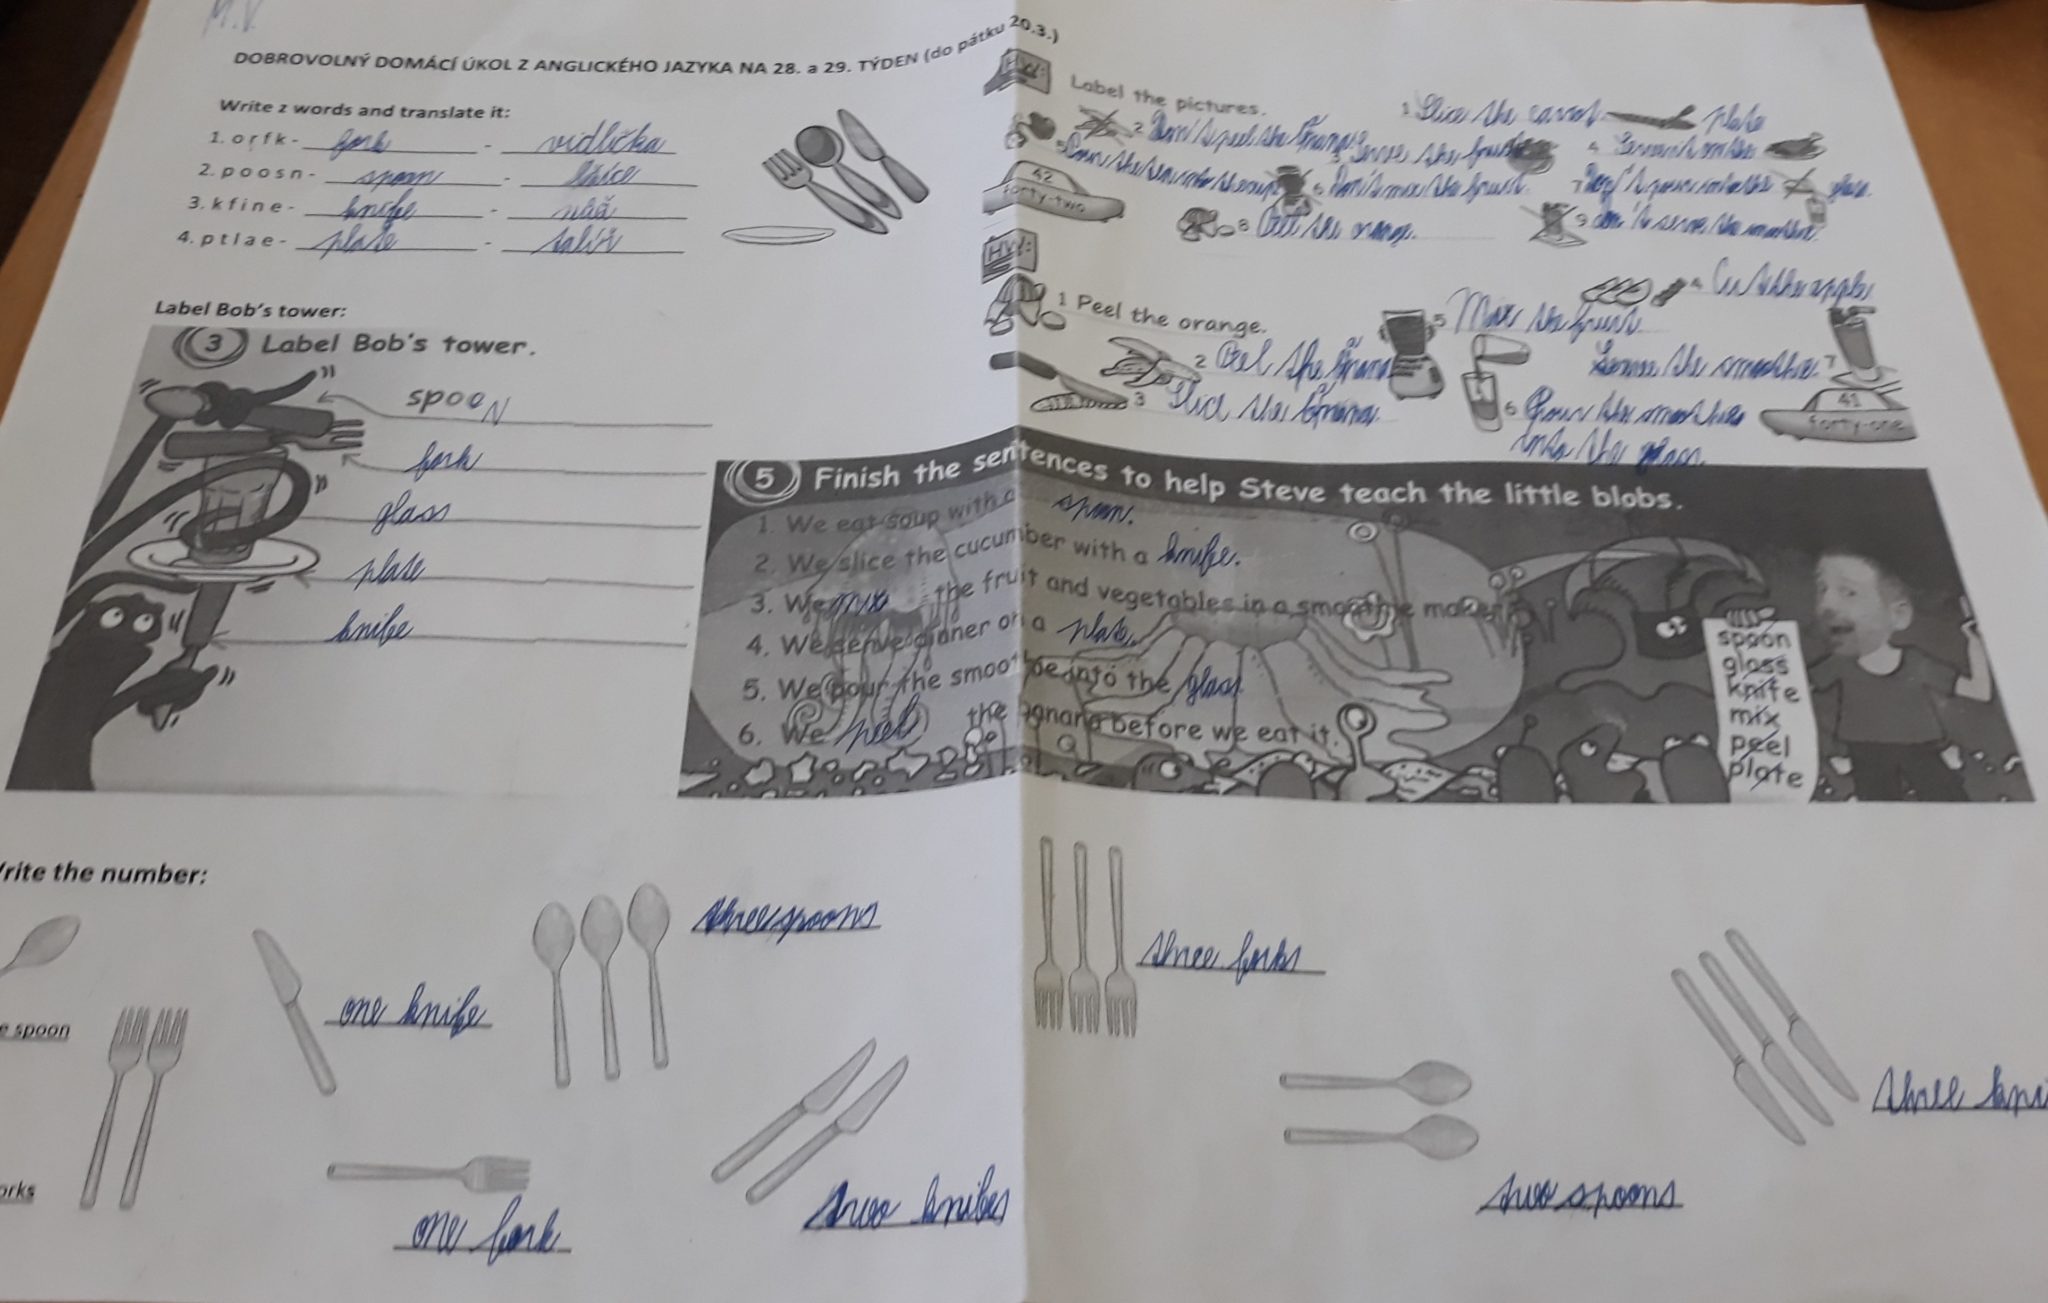 M.V.
DOBROVOLNÝ DOMÁCÍ ÚKOL Z ANGLICKÉHO JAZYKA NA 28. a 29. TÝDEN (do pátku 20.3.)
Write z words and translate it:
1. o r f k - fork - vidlička
2. p o o s n - spoon - lžíce
3. k f i n e - knife - nůž
4. p t l a e - plate - talíř
Label Bob's tower:
3 Label Bob's tower.
spooN
fork
glass
plate
knife
HW:
Label the pictures.
1 Slice the carrot. plate
2 Don't peel the
3 Serve the fruit
4
5 Pour the
6 Don't mix the fruit.
7 glass.
8 Peel the orange.
9 don't serve the
42
forty-two
HW:
1 Peel the orange.
2 Peel the
3 Slice the
4 Cut the apple
5 Mix the fruit.
6 Pour the
into the glass.
Serve the 7
41
forty-one
5 Finish the sentences to help Steve teach the little blobs.
1. We eat soup with a spoon.
2. We slice the cucumber with a knife.
3. We mix the fruit and vegetables in a smoothie maker.
4. We serve dinner on a plate.
5. We pour the smoothie into the glass
6. We peel the banana before we eat it.
spoon
glass
knife
mix
peel
plate
rite the number:
e spoon
one knife
three spoons
three forks
three kni
orks
one fork
two knifes
two spoons